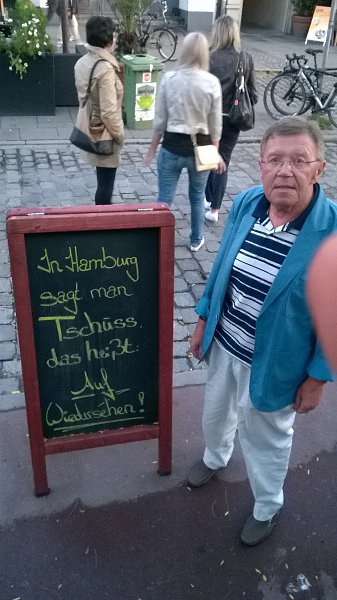 In Hamburg
sagt man
Tschüss.
das heißt:
Auf
Wiedersehen!